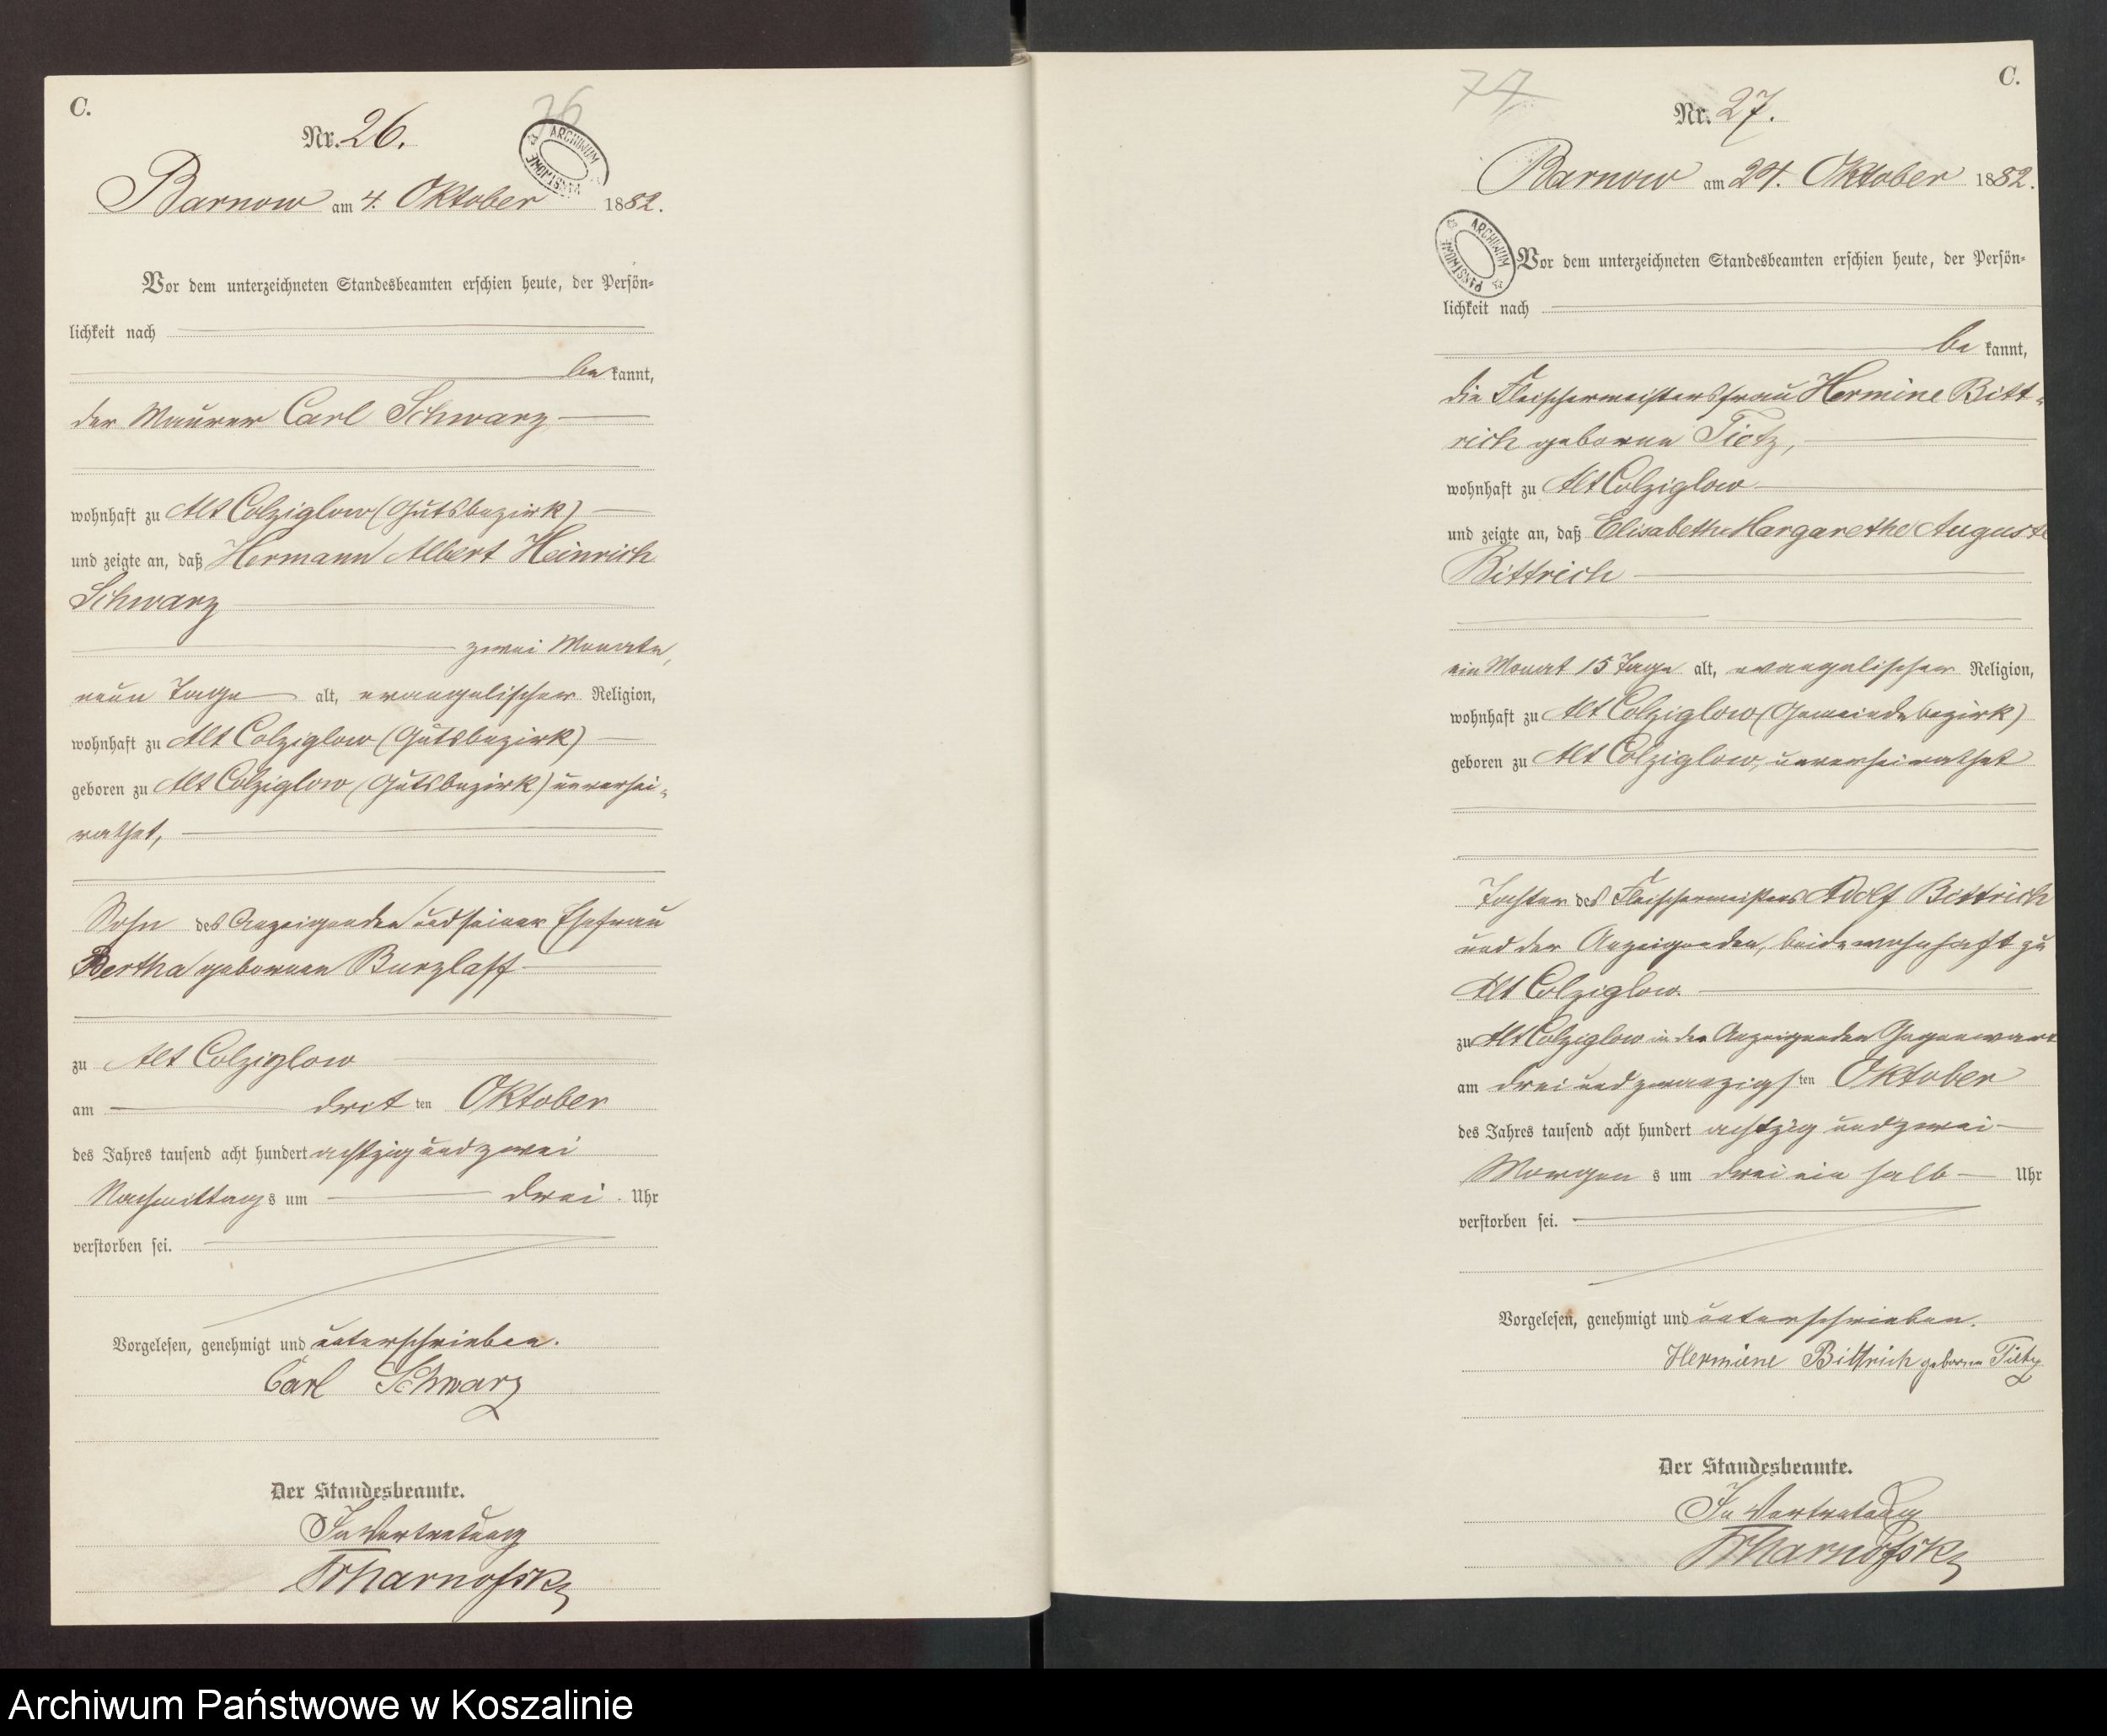 C.
76
Nr. 26.
ARCHIWUM PAŃSTWOWE
Barnow am 4. Oktober 1882.
Vor dem unterzeichneten Standesbeamten erschien heute, der Persön-
lichkeit nach
be kannt,
der Maurer Carl Schwarz
wohnhaft zu Alt Colziglow (Gutsbezirk)
und zeigte an, daß Hermann Albert Heinrich
Schwarz
zwei Monate,
neun Tage alt, evangelischer Religion,
wohnhaft zu Alt Colziglow (Gutsbezirk)
geboren zu Alt Colziglow (Gutsbezirk) unverhei-
rathet,
Sohn des Anzeigenden und seiner Ehefrau
Bertha geborenen Burzlaff
zu Alt Colziglow
am drit ten Oktober
des Jahres tausend acht hundert achtzig und zwei
Nachmittags um drei Uhr
verstorben sei.
Vorgelesen, genehmigt und unterschrieben.
Carl Schwarz
Der Standesbeamte.
In Vertretung
C.
77
Nr. 27.
Barnow am 24. Oktober 1882.
ARCHIWUM PAŃSTWOWE
Vor dem unterzeichneten Standesbeamten erschien heute, der Persön-
lichkeit nach
be kannt,
die Fleischermeistersfrau Hermine Bitt-
rich geborene Tietz,
wohnhaft zu Alt Colziglow
und zeigte an, daß Elisabeth Margarethe Auguste
Bittrich
ein Monat 15 Tage alt, evangelischer Religion,
wohnhaft zu Alt Colziglow (Gemeindebezirk)
geboren zu Alt Colziglow, unverheirathet
Tochter des Fleischermeisters Adolf Bittrich
und der Anzeigenden, beide wohnhaft zu
Alt Colziglow
zu Alt Colziglow in der Anzeigenden Gegenwart
am drei und zwanzigs ten Oktober
des Jahres tausend acht hundert achtzig und zwei
Morgen s um drei ein halb Uhr
verstorben sei.
Vorgelesen, genehmigt und unterschrieben.
Hermine Bittrich geborene Tietz
Der Standesbeamte.
In Vertretung
Archiwum Państwowe w Koszalinie